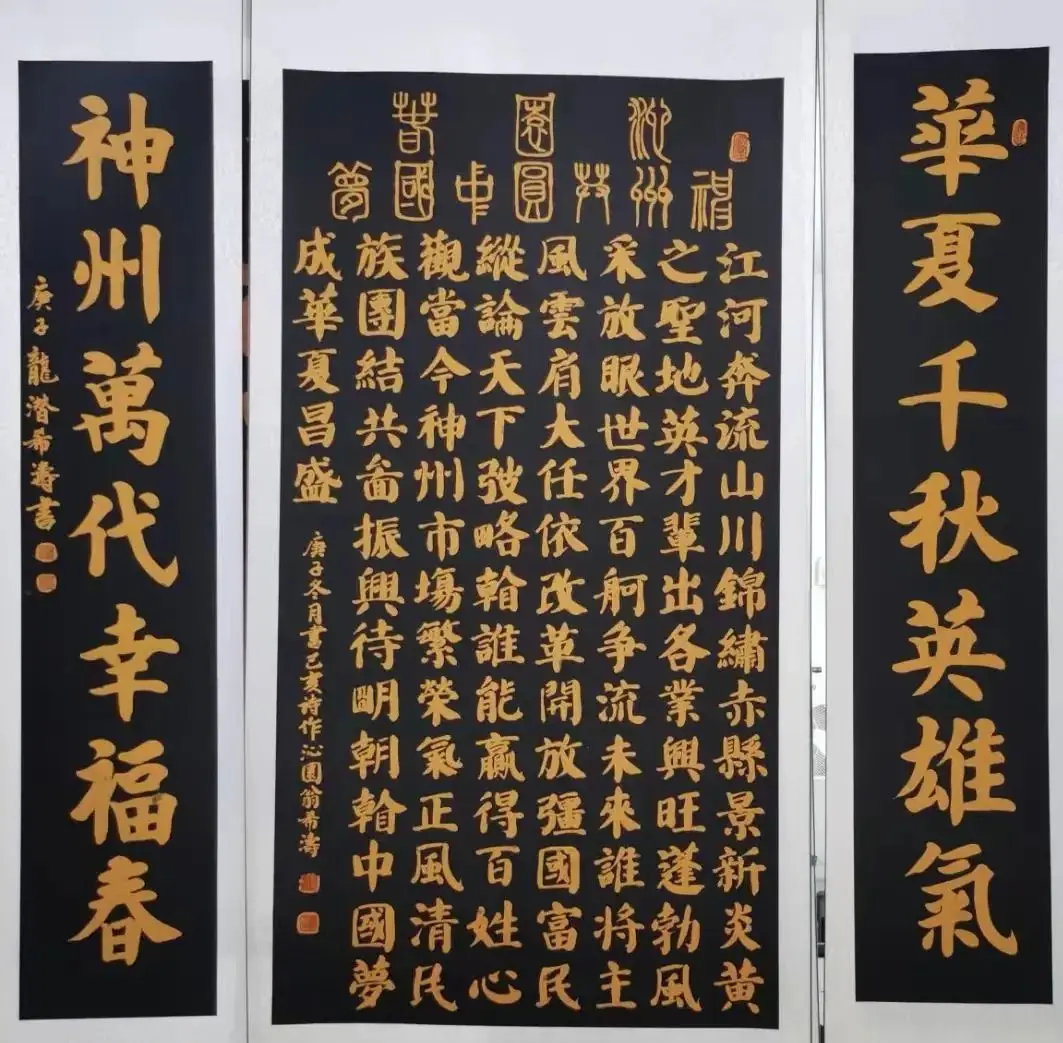 華夏千秋英雄氣
沁園春
神州共圓中國夢
江河奔流山川錦繡赤縣景新炎黃
之聖地英才輩出各業興旺蓬勃風
采放眼世界百舸争流未來誰將主
風雲肩大任依改革開放彊國富民
縱論天下弢略誰能贏得百姓心
觀當今神州市塲繁榮氣正風清民
族團結共啚振興待眀朝中國夢
成華夏昌盛
庚子冬月書己亥詩作沁園翁希濤
神州萬代幸福春
庚子龍潛希濤書